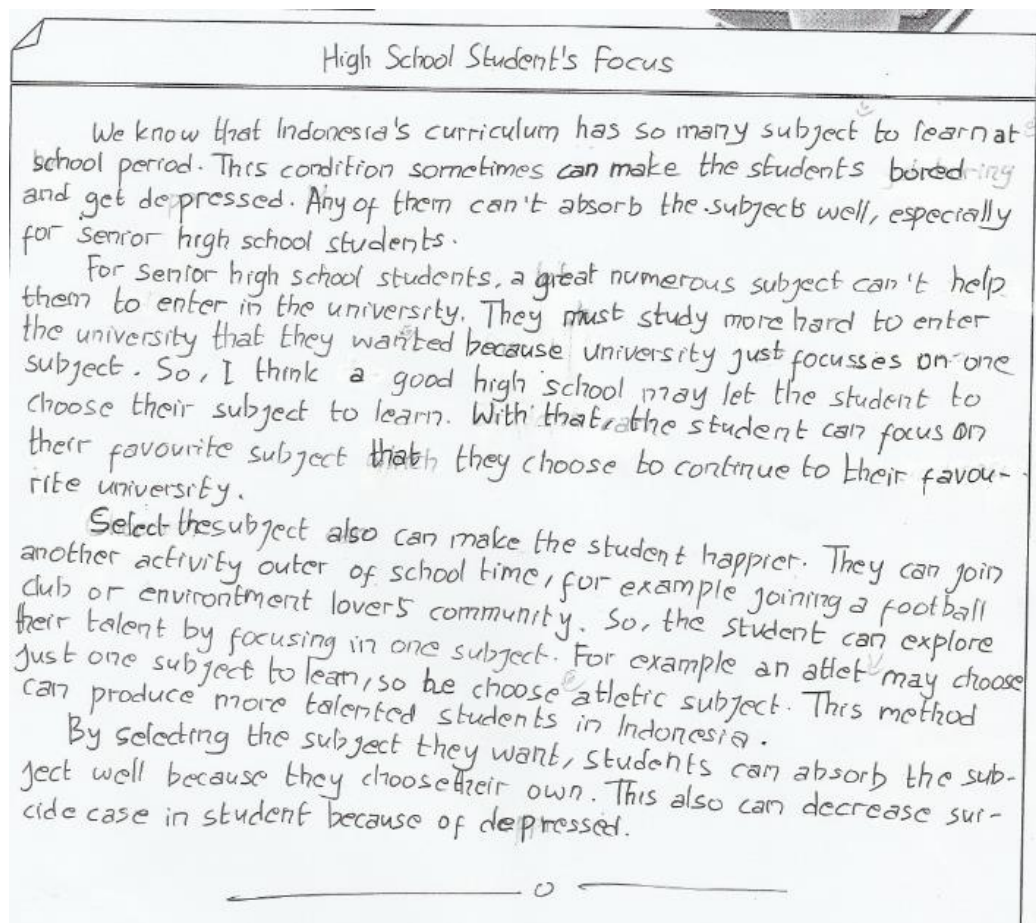 High School Student's Focus
We know that Indonesia's curriculum has so many subject to learn at
school period. This condition sometimes can make the students bored
and get depressed. Any of them can't absorb the subjects well, especially
for senior high school students.
For senior high school students, a great numerous subject can't help
them to enter in the university. They must study more hard to enter
the university that they wanted because university just focusses on one
subject. So, I think a good high school may let the student to
choose their subject to learn. With that, the student can focus on
their favourite subject that they choose to continue to their favou-
rite university.
Select the subject also can make the student happier. They can join
another activity outer of school time, for example joining a football
club or environtment lovers community. So, the student can explore
their talent by focusing in one subject. For example an atlet may choose
just one subject to lean, so he choose atletic subject. This method
can produce more talented students in Indonesia.
By selecting the subject they want, students can absorb the sub-
ject well because they choose their own. This also can decrease sui-
cide case in student because of depressed.